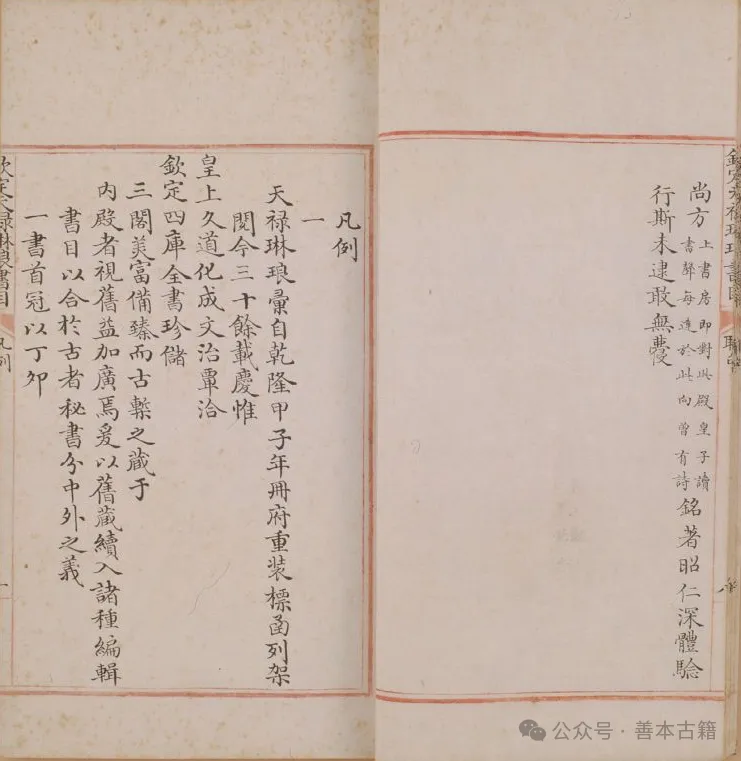 尚方上書房即對此殿皇子讀書聲每達於此向曾有詩銘著昭仁深體驗
行斯未逮敢無慶
凡例
一
天禄琳琅彙自乾隆甲子年冊府重装標函列架
閱今三十餘載慶惟
皇上久道化成文治覃洽
欽定四庫全書珍儲
三閣美富備臻而古槧之蔵于
内殿者視舊益加廣焉爰以舊蔵續入諸種編輯
書目以合於古者秘書分中外之義
一書首冠以丁卯
欽定天禄琳琅書目
凡例
一
公众号·善本古籍